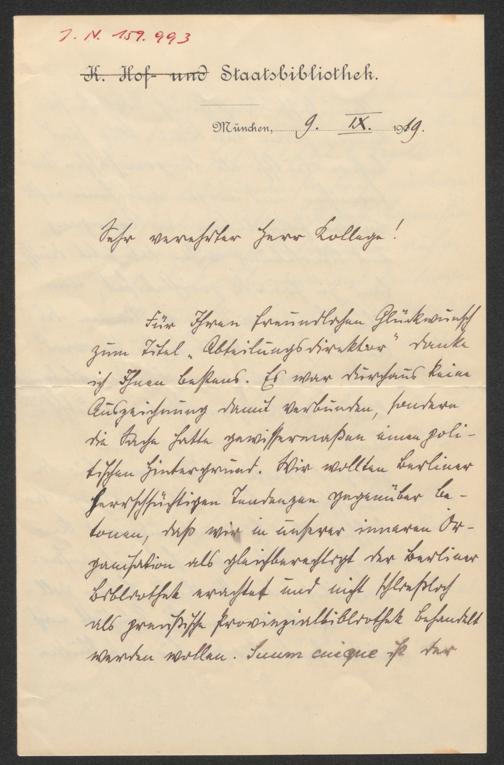 J. N. 159.993
K. Hof- und Staatsbibliothek.
München, 9. IX. 1919.
Sehr verehrter Herr Kollege!
Für Ihren freundlichen Glückwunsch
zum Titel „Abteilungsdirektor" danke
ich Ihnen bestens. Es war durchaus keine
Auszeichnung damit verbunden, sondern
die Sache hatte gewissermaßen einen poli-
tischen Hintergrund. Wir wollten Berliner
herrschsüchtigen Tendenzen gegenüber be-
tonen, daß wir in unserer inneren Or-
ganisation als gleichberechtigt der Berliner
Bibliothek erachtet und nicht schließlich
als preußische Provinzialbibliothek behandelt
werden wollen. Suum cuique ist der